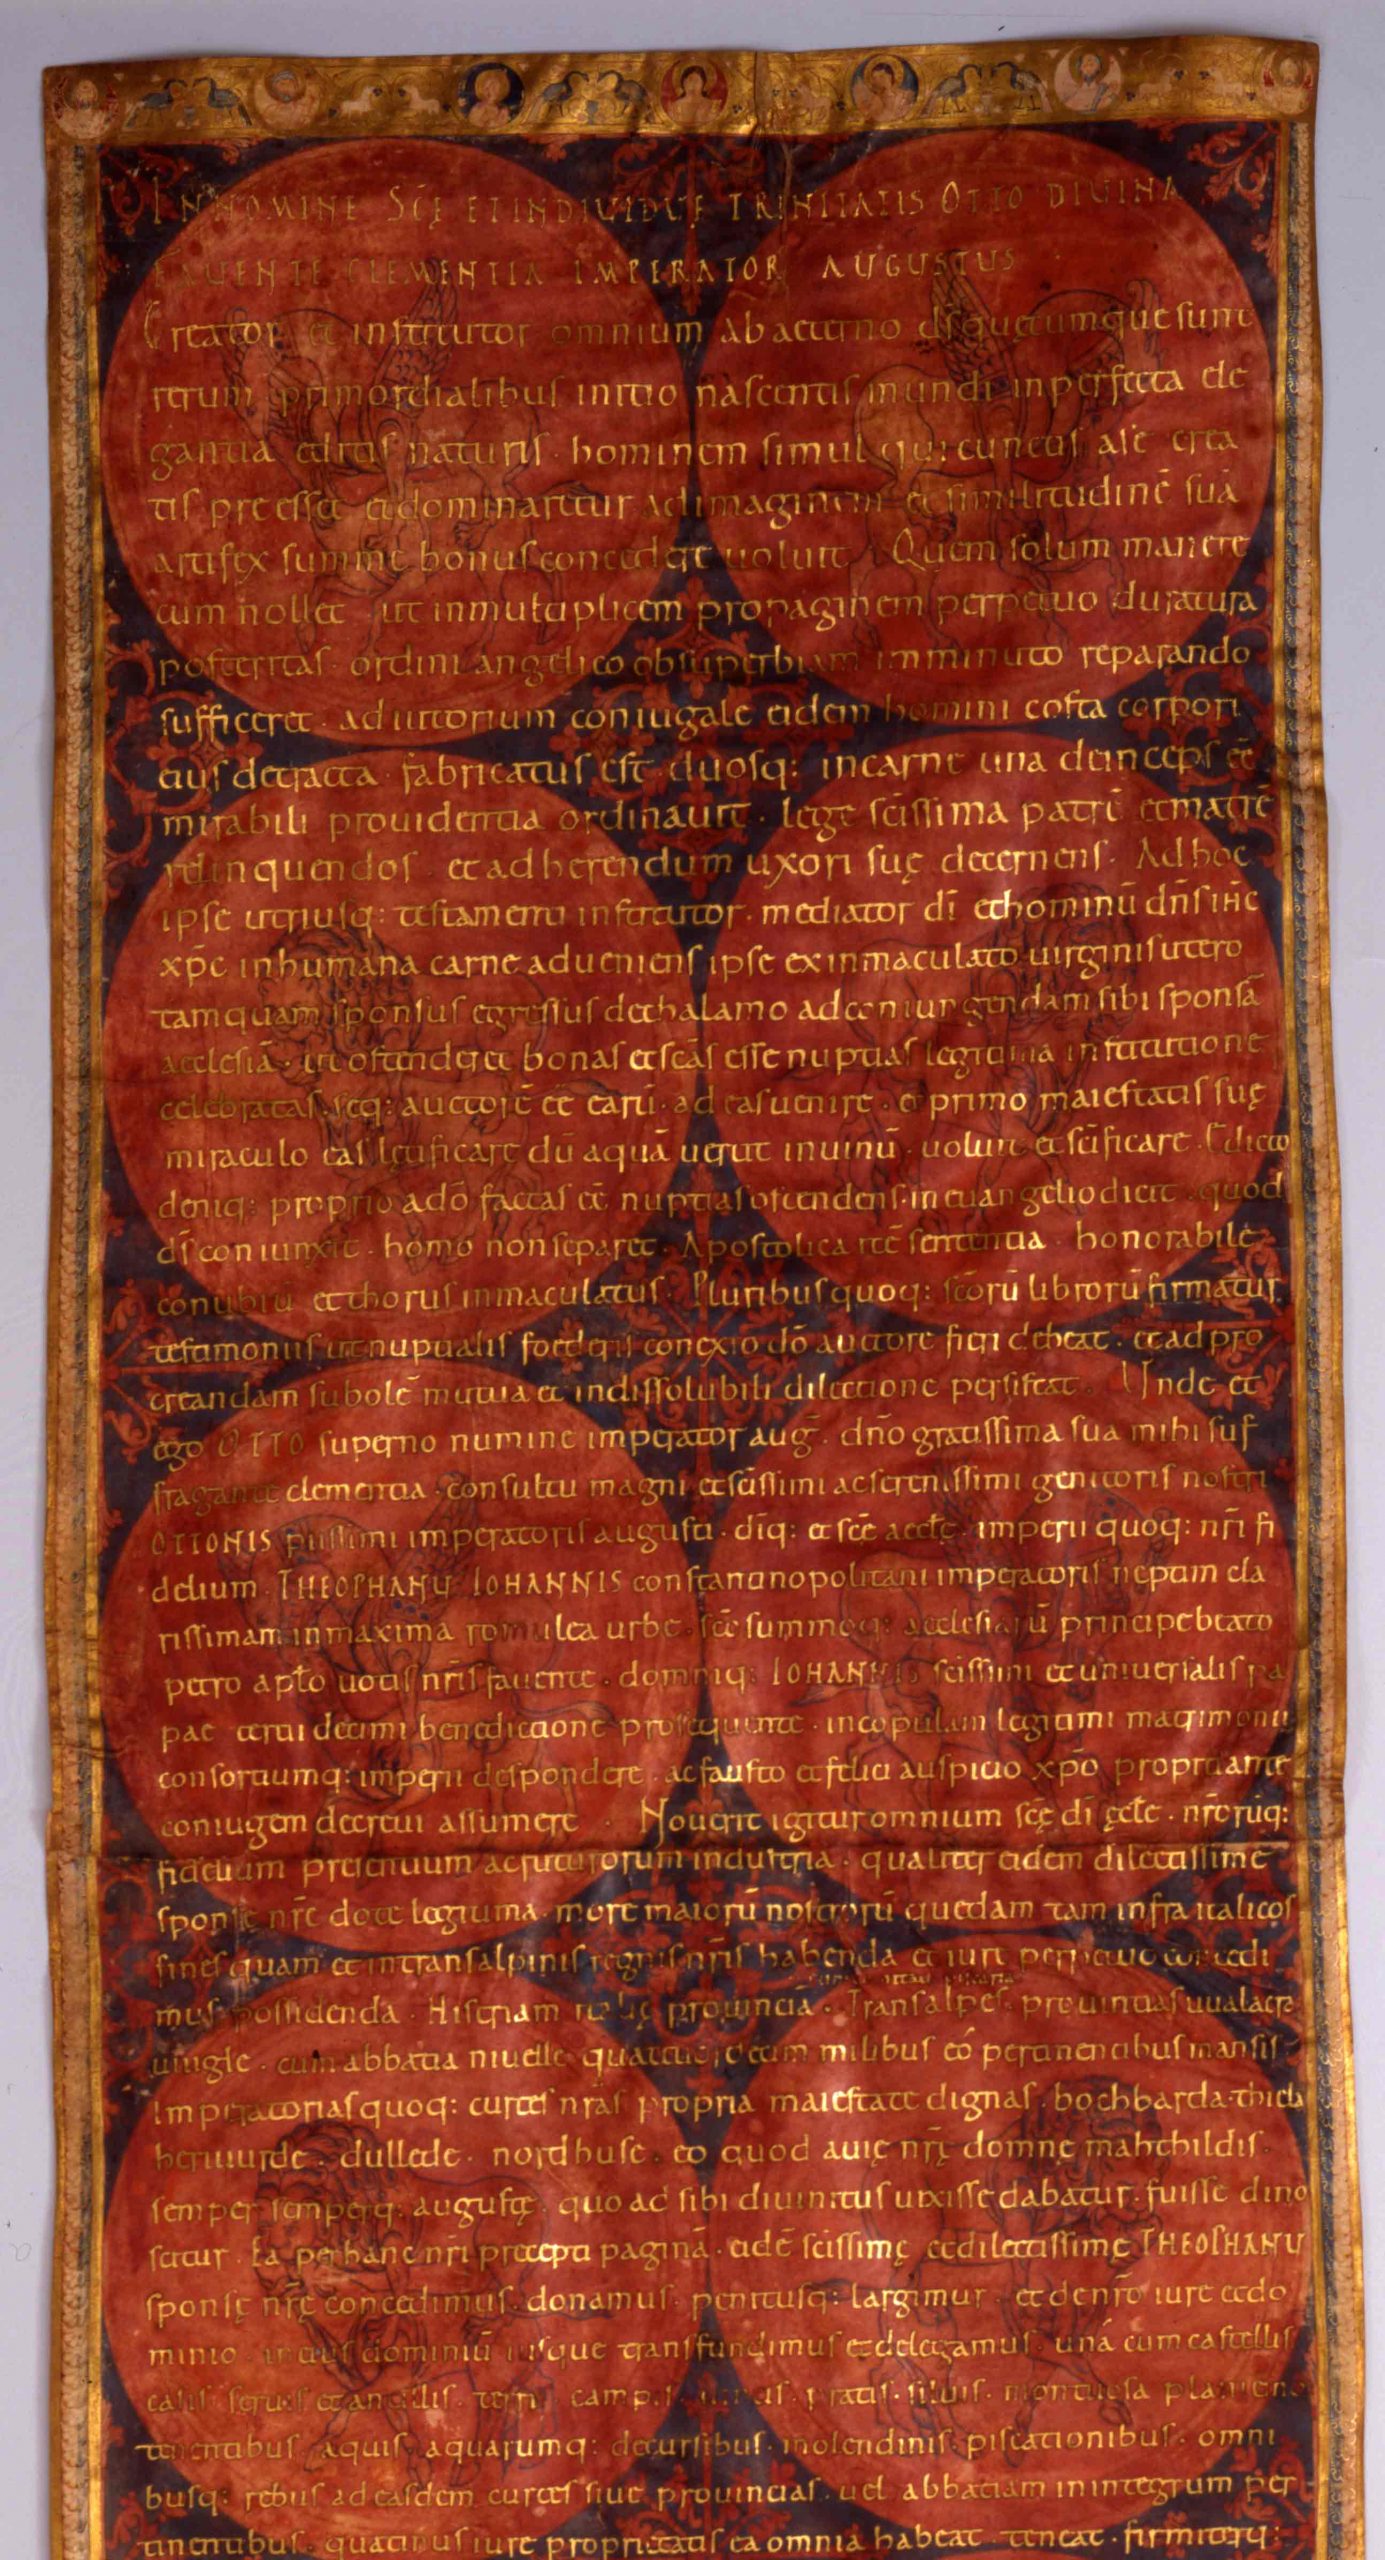 IN NOMINE SCĘ ET INDIVIDUĘ TRINITATIS OTTO DIVINA
FAVENTE CLEMENTIA IMPERATOR AUGUSTUS
Creator et institutor omnium ab aeterno ds̄ quęcumque sunt
rerum primordialibus initio nascentis mundi in perfecta ele
gantia editis naturis · hominem simul qui cunctis a se crea
tis preesset et dominaretur ad imaginem et similitudinē suā
artifex summe bonus concedere uoluit · Quem solum manere
cum nollet ut in multiplicem propaginem perpetuo duratura
posteritas · ordini angelico ob superbiam imminuto reparando
sufficeret · adiutorium coniugale eidem homini costa corpori
eius detracta · fabricatus est · duosq: in carne una deinceps eē
mirabili prouidentia ordinauit · lege scīssima patrē et matrē
relinquendos · et adherendum uxori suę decernens · Ad hoc
ipse utriusq: testamenti institutor · mediator dī et hominū dn̄s ih̄c
xp̄c in humana carne adueniens ipse ex inmaculato uirginis utero
tamquam sponsus egressus de thalamo ad coniungendam sibi sponsā
aecclesiā · ut ostenderet bonas et scās esse nuptias legitima institutione
celebratas · seq: auctorē eē earū · ad eas uenire · et primo maiestatis suę
miraculo eas lętificare dū aquā uertit in uinū · uoluit et scīficare · Edicto
deniq: proprio a dō factas eē nuptias ostendens · in euangelio dicit · quod
ds̄ coniunxit · homo non separet · Apostolica · honorabile
conubiū et thorus inmaculatus · Pluribus quoq: scōrū librorū firmatur
testimoniis ut nuptialis foederis conexio dō auctore fieri debeat · et ad pro
creandam subolē mutua et indissolubili dilectione persistat · Unde et
ego OTTO superno numine imperator aug̅ · dn̄o gratissima sua mihi suf
fragante clementia · consultu magni et scīssimi ac serenissimi genitoris nostri
OTTONIS piissimi imperatoris augusti · dīq: et scē aeccłę · imperii quoq: nr̄i fi
delium · THEOPHANU IOHANNIS constantinopolitani imperatoris neptim cla
rissimam in maxima romulea urbe · scē summoq: aecclesiarū principe beato
petro apłō uotis nr̄is fauente · domniq: IOHANNIS scīssimi et uniuersalis pa
pae tertii decimi benedictione prosequente · in copulam legitimi matrimonii
consortiumq: imperii despondere · ac fausto et felici auspicio xp̄o propitiante
coniugem decreui assumere · Nouerit igitur omnium scę dī ęcłę · nr̄orūq:
fidelium presentium ac futurorum industria · qualiter eidem dilectissimę
sponsę nr̄ę dote legitima · more maiorū nostrorū quedam tam infra italicos
fines quam et in transalpinis regnis nr̄is habenda et iure perpetuo concedi
mus possidenda · Histriam italię prouinciā · Transalpes · prouintias uualacra
uuigle · cum abbatia niuelle quattuordecim milibus eō pertinentibus mansis
Imperatorias quoq: curtes nr̄as propria maiestate dignas · bochbarda · thiela
heriuurde · dullede · nordhuse · eo quod auię nr̄ę domnę mahthildis ·
semper semperq: augustę · quo ad sibi diuinitus uixisse dabatur · fuisse dino
scitur · Ea per hanc nr̄i precepti paginā · eidē scīssimę et dilectissimę THEOPHANU
sponsę nr̄ę concedimus · donamus · penitusq: largimur · et de nr̄o iure et do
minio · in eius dominiū iusque transfundimus et delegamus · una cum castellis
casis seruis et ancillis · terris campis uineis · pratis · siluis · montuosa planiciē
tenentibus · aquis · aquarumq: decursibus · molendinis · piscationibus · omni
busq: rebus ad easdem curtes siue prouincias · uel abbatiam in integrum per
tinentibus · quatinus iure proprietatis ea omnia habeat · teneat · firmiterq: